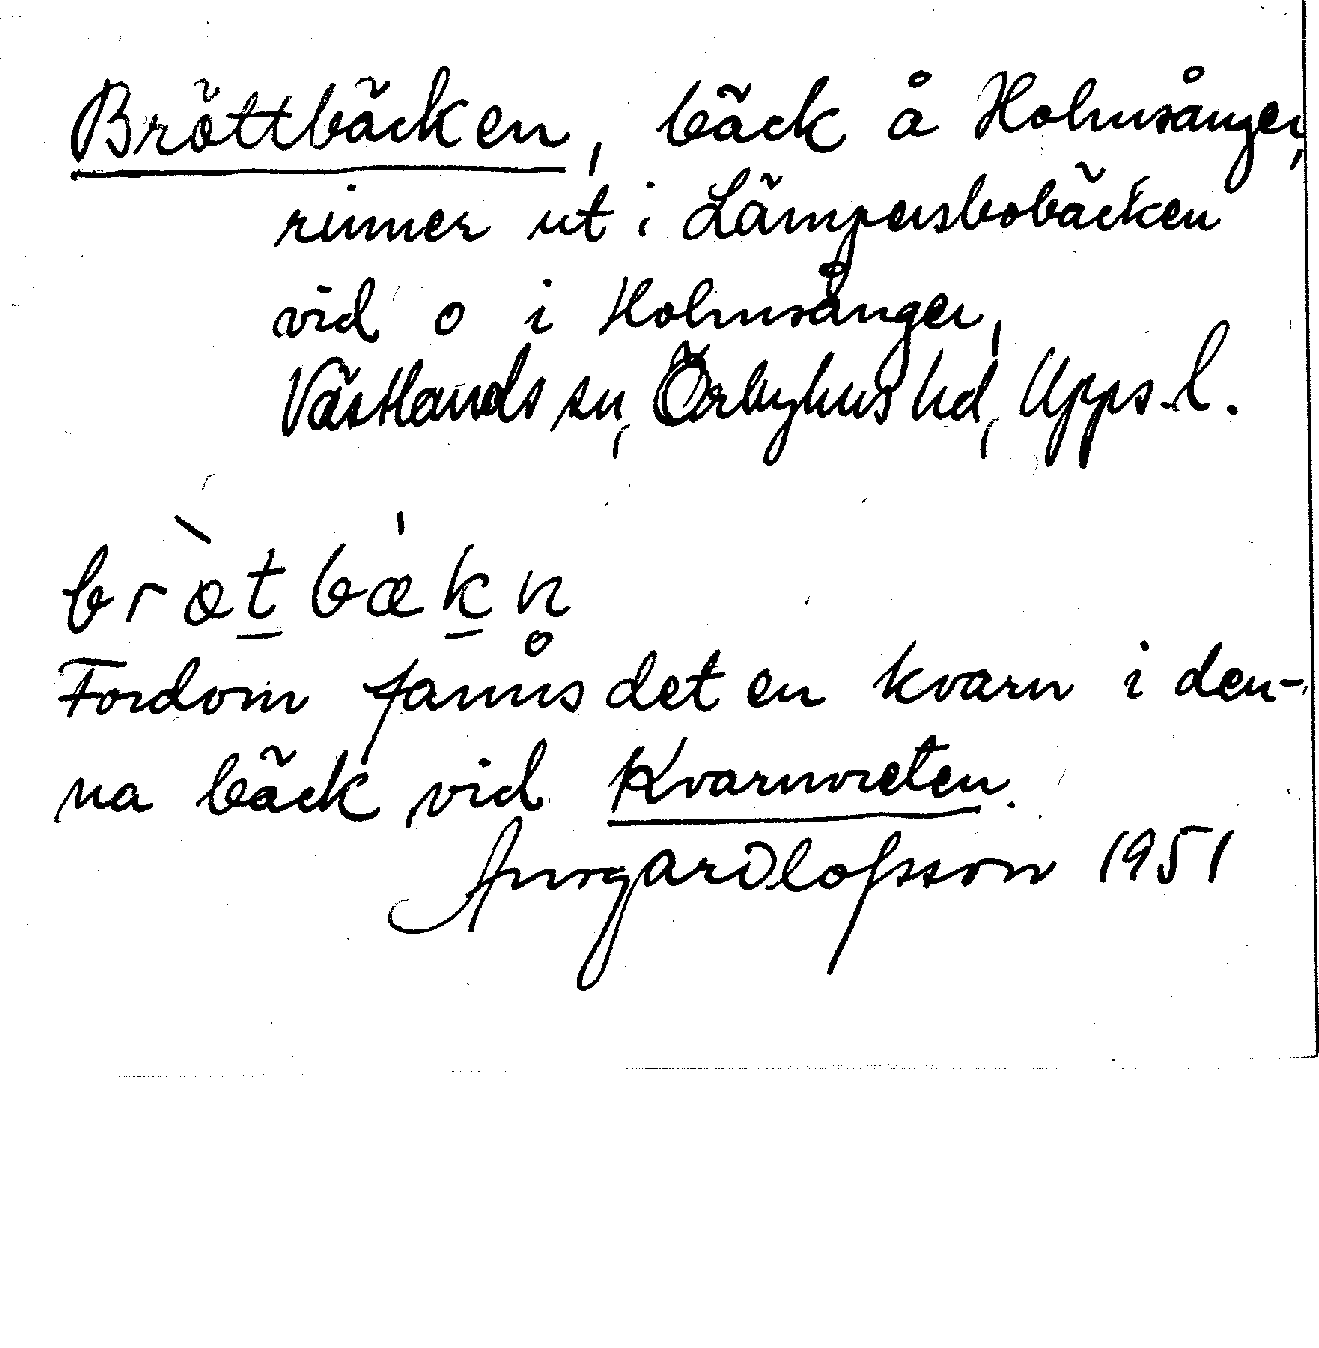 Bröttbäcken, bäck å Holmsånger,
rinner ut i Lämpersbobäcken
vid o i Holmsånger,
Västlands sn, Örbyhus hd, Upps. l.
bræ̀t̲bæ̍k̲n̥
Fordom fanns det en kvarn i den-
na bäck vid Kvarnvreten.
Ansgar Olofsson 1951